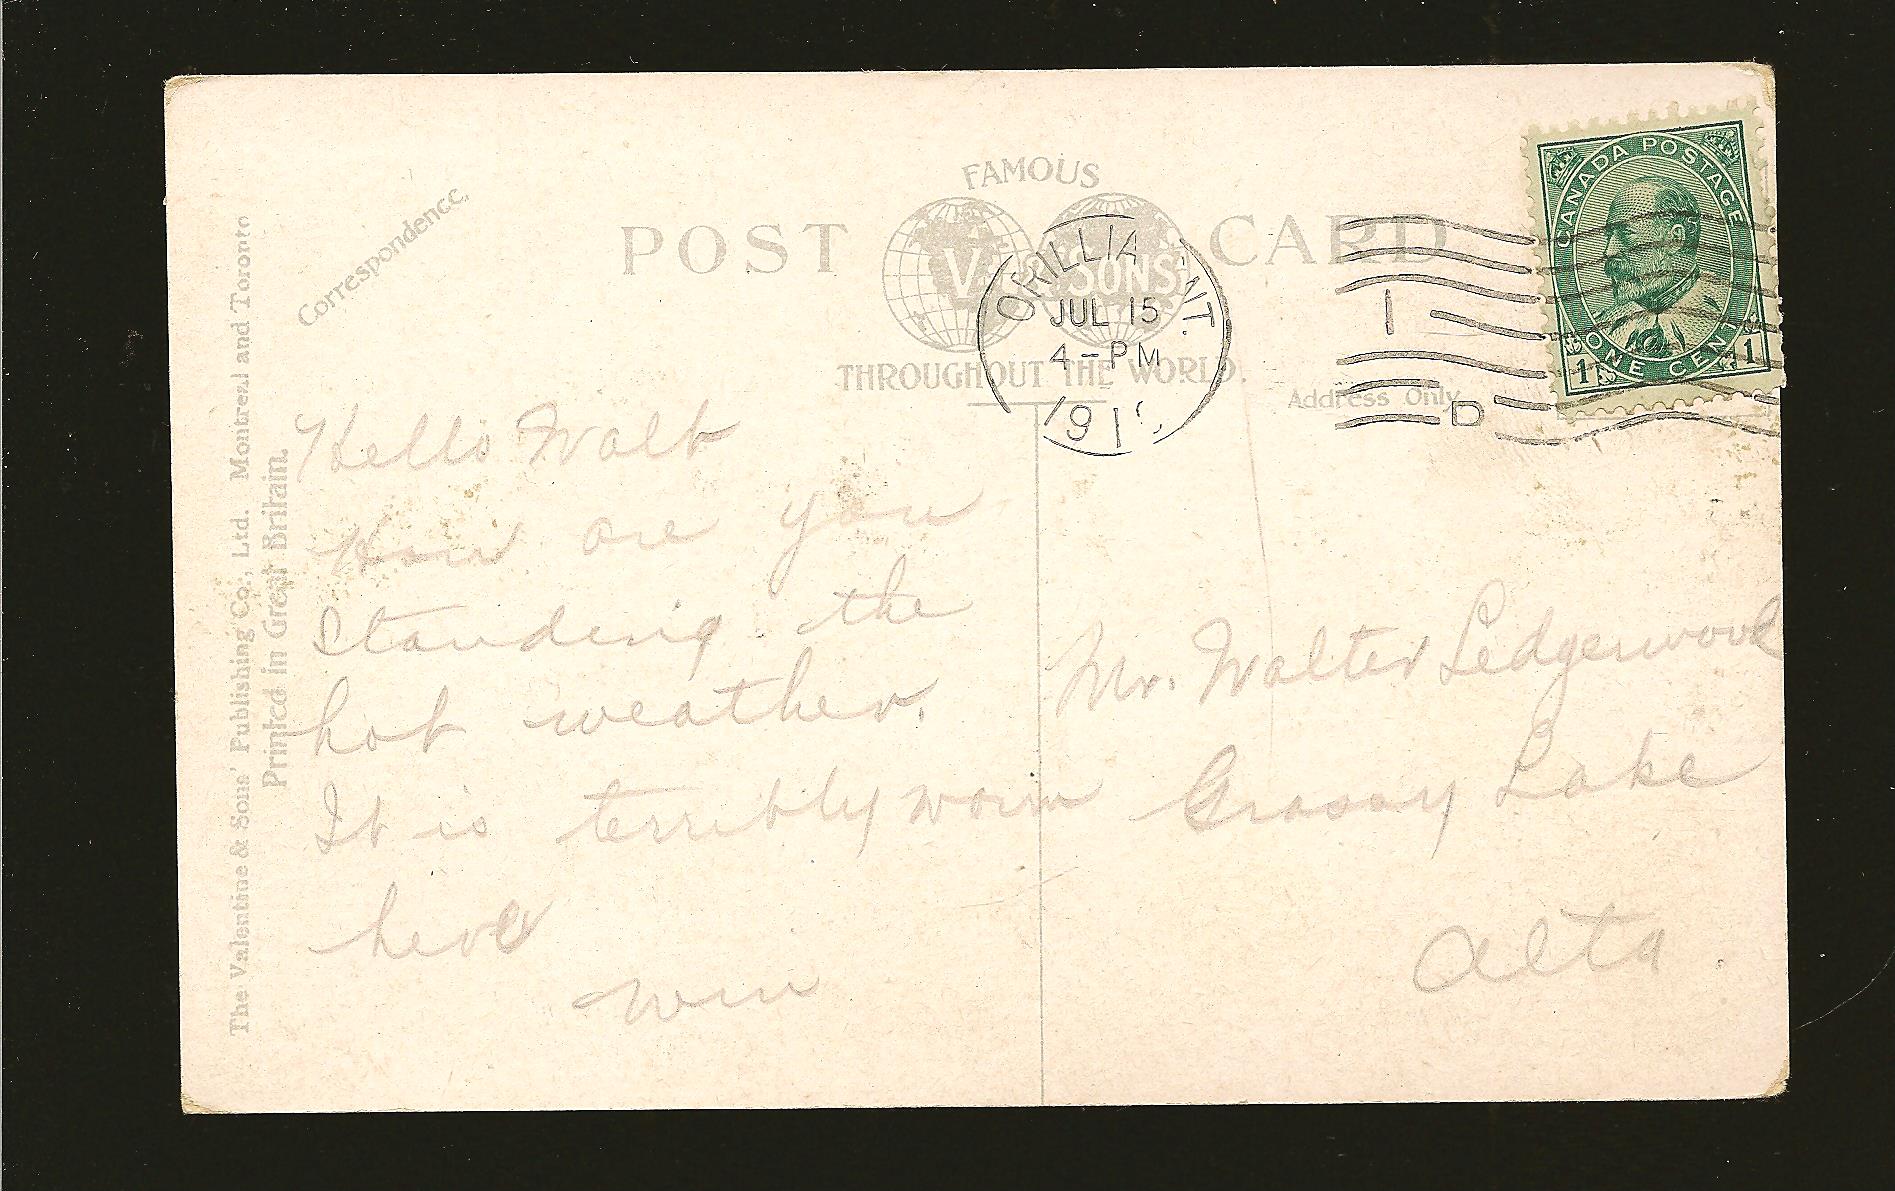 Correspondence.
FAMOUS
POST CARD
V. & SONS
THROUGHOUT THE WORLD.
Address Only
ORILLIA ONT.
JUL 15
4-PM
191
1
D
CANADA POSTAGE
ONE CENT
1 1
The Valentine & Sons' Publishing Co., Ltd. Montreal and Toronto
Printed in Great Britain.
Hello Walt
How are you
standing the
hot weather.
It is terribly warm
here
Win
Mr. Walter Ledgerwood
Grassy Lake
Alta.